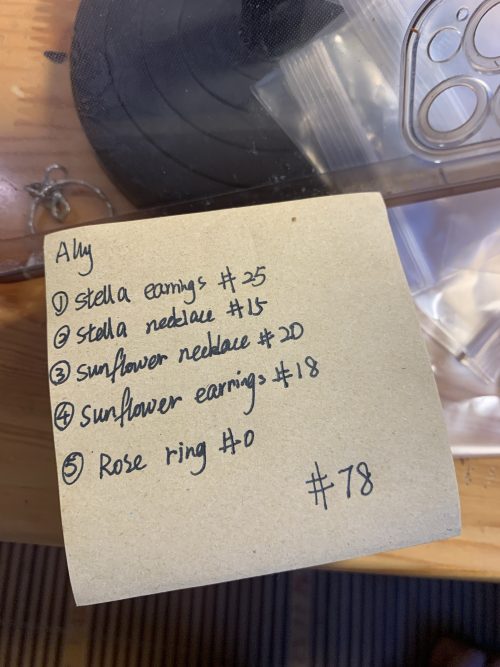 Ally
① stella earrings #25
② stella necklace #15
③ sunflower necklace #20
④ sunflower earrings #18
⑤ Rose ring #0
#78